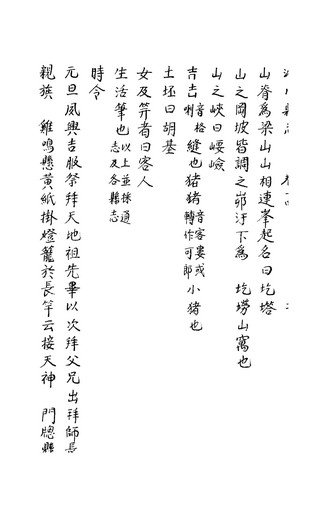 山脊為梁山山相連峯起名曰圪塔
山之岡坡皆謂之峁汙下為 圪塄山窩也
山之峽曰崾嶮
吉吉 音格 喇 縫也猪猪 音客婁或 轉作可郎 小猪也
土坯曰胡基
女及笄者曰客人
生活筆也 以上並採通 志及各縣志
時令
元旦夙興吉服祭拜天地祖先畢以次拜父兄出拜師長
親族 雞鳴懸黃紙掛燈籠於長竿云接天神 門牕縣